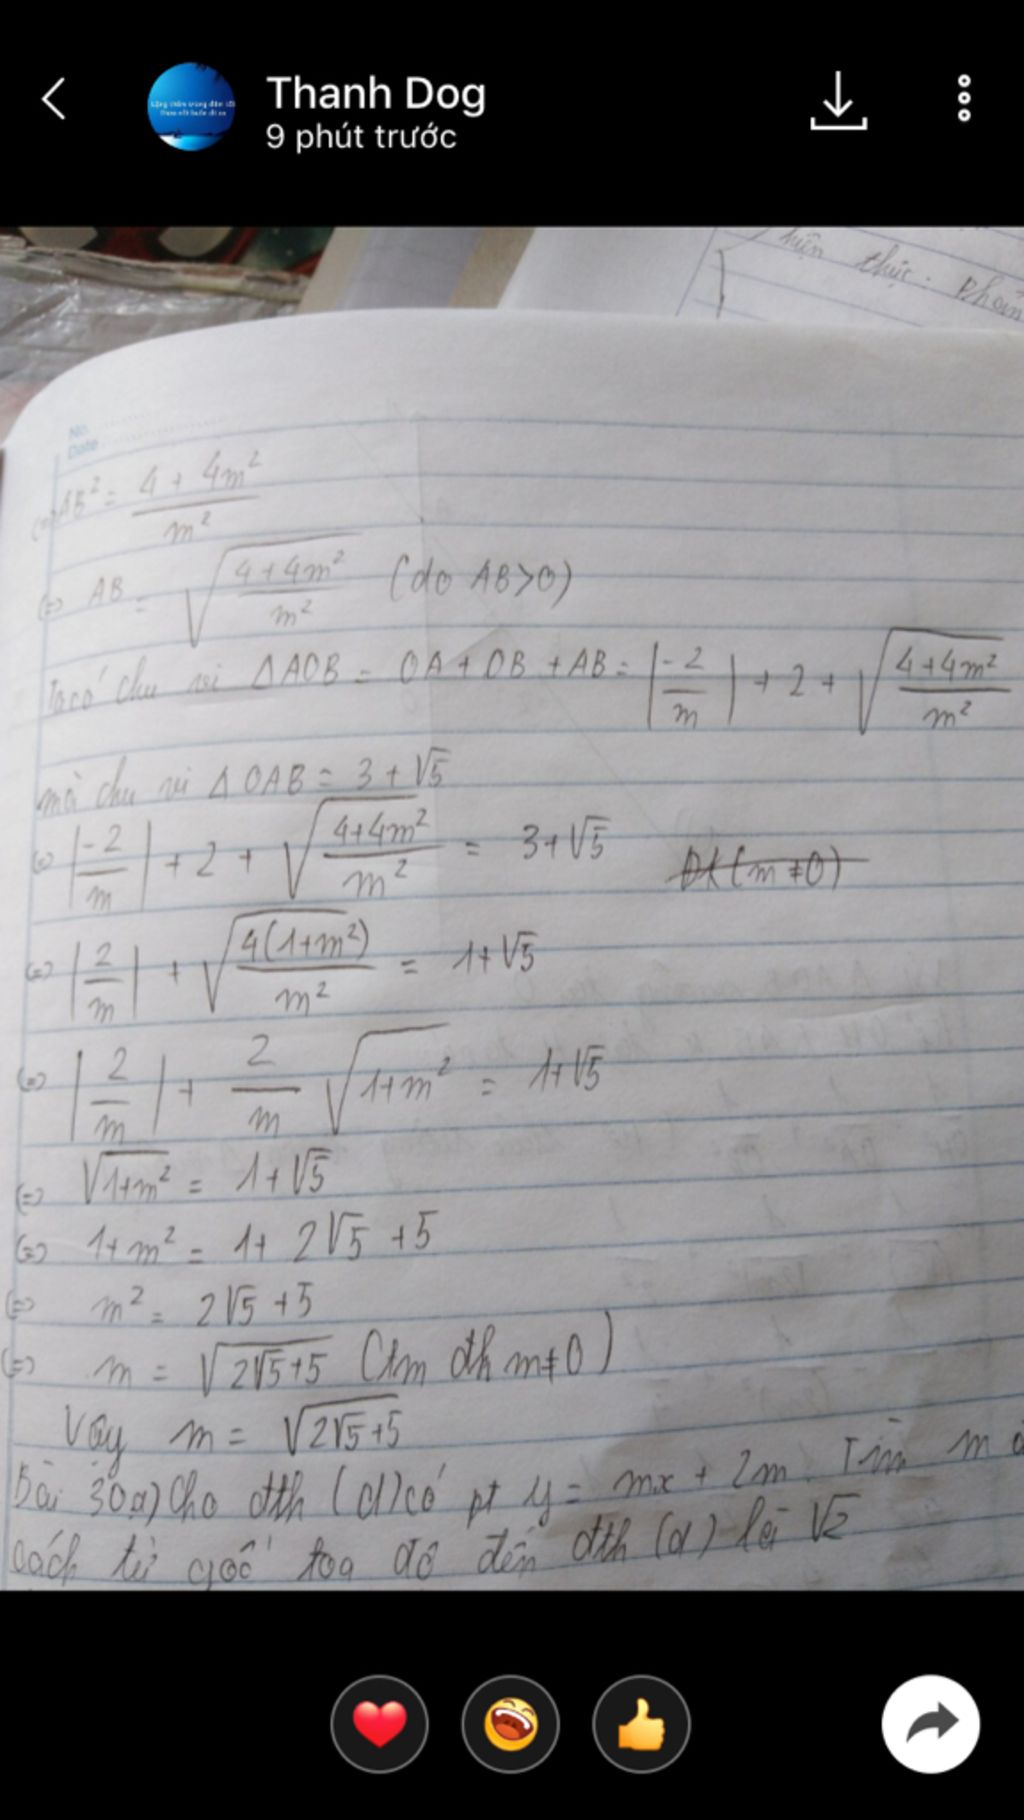 Thanh Dog
9 phút trước
hiện thực. Phản
No.
Date
(=) AB² = (4 + 4m²)/m²
(=) AB = √((4+4m²)/m²) (do AB>0)
Ta có chu vi ΔAOB = OA + OB + AB = |-2/m| + 2 + √((4+4m²)/m²)
mà chu vi ΔOAB = 3 + √5
(=) |-2/m| + 2 + √((4+4m²)/m²) = 3+√5
(=) |2/m| + √(4(1+m²)/m²) = 1+√5
(=) |2/m| + 2/m √(1+m²) = 1+√5
(=) √(1+m²) = 1+√5
(=) 1+m² = 1+ 2√5 +5
(=) m² = 2√5 +5
(=) m = √(2√5+5) (tm đk m≠0)
Vậy m = √(2√5+5)
Bài 30a) Cho đth (d) có pt y = mx + 2m. Tìm m
cách từ gốc toạ độ đến đth (d) là √2